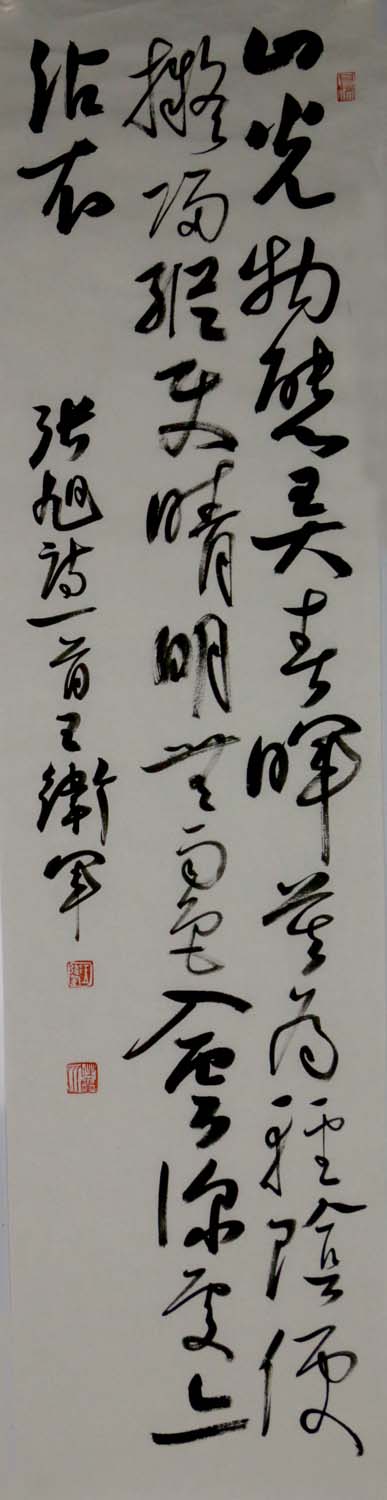 山光物態弄春暉莫為輕陰便
擬歸縱使晴明無雨色入雲深處亦
沾衣
張旭詩一首王衛軍